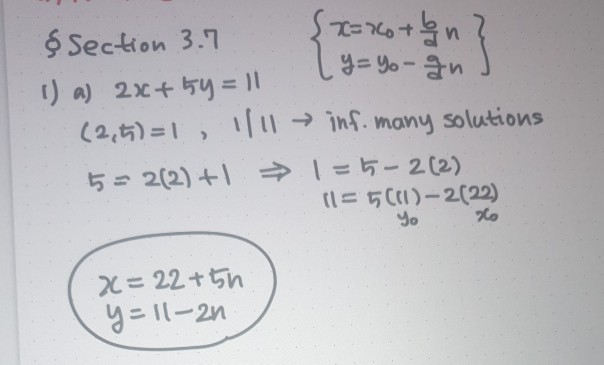 § Section 3.7
{ x = x₀ + b/d n
y = y₀ - a/d n }
1) a) 2x + 5y = 11
(2,5) = 1 , 1|11 → inf. many solutions
5 = 2(2) + 1 ⇒ 1 = 5 - 2(2)
11 = 5(11) - 2(22)
y₀ x₀
x = 22 + 5n
y = 11 - 2n